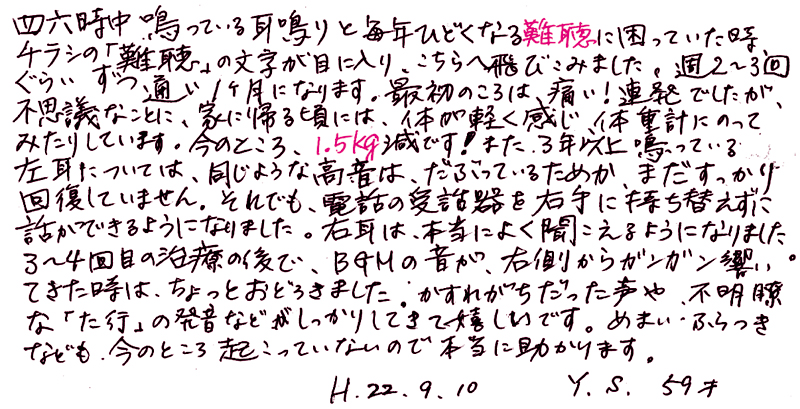 四六時中鳴っている耳鳴りと毎年ひどくなる難聴に困っていた時、
チラシの「難聴」の文字が目に入り、こちらへ飛びこみました。週2〜3回
ぐらいずつ通い1ヶ月になります。最初のころは、痛い!連発でしたが、
不思議なことに、家に帰る頃には、体が軽く感じ、体重計にのって
みたりしています。今のところ、1.5kg減です!また、3年以上鳴っている
左耳については、同じような高音は、だぶっているためか、まだすっかり
回復していません。それでも、電話の受話器を右手に持ち替えずに
話ができるようになりました。右耳は、本当によく聞こえるようになりました
3〜4回目の治療の後で、BGMの音が、右側からガンガン響い。
てきた時は、ちょっとおどろきました。かすれがちだった声や、不明瞭
な「た行」の発音などがしっかりしてきて嬉しいです。めまい・ふらつき
なども、今のところ起こっていないので本当に助かります。
H.22.9.10 Y.S. 59才